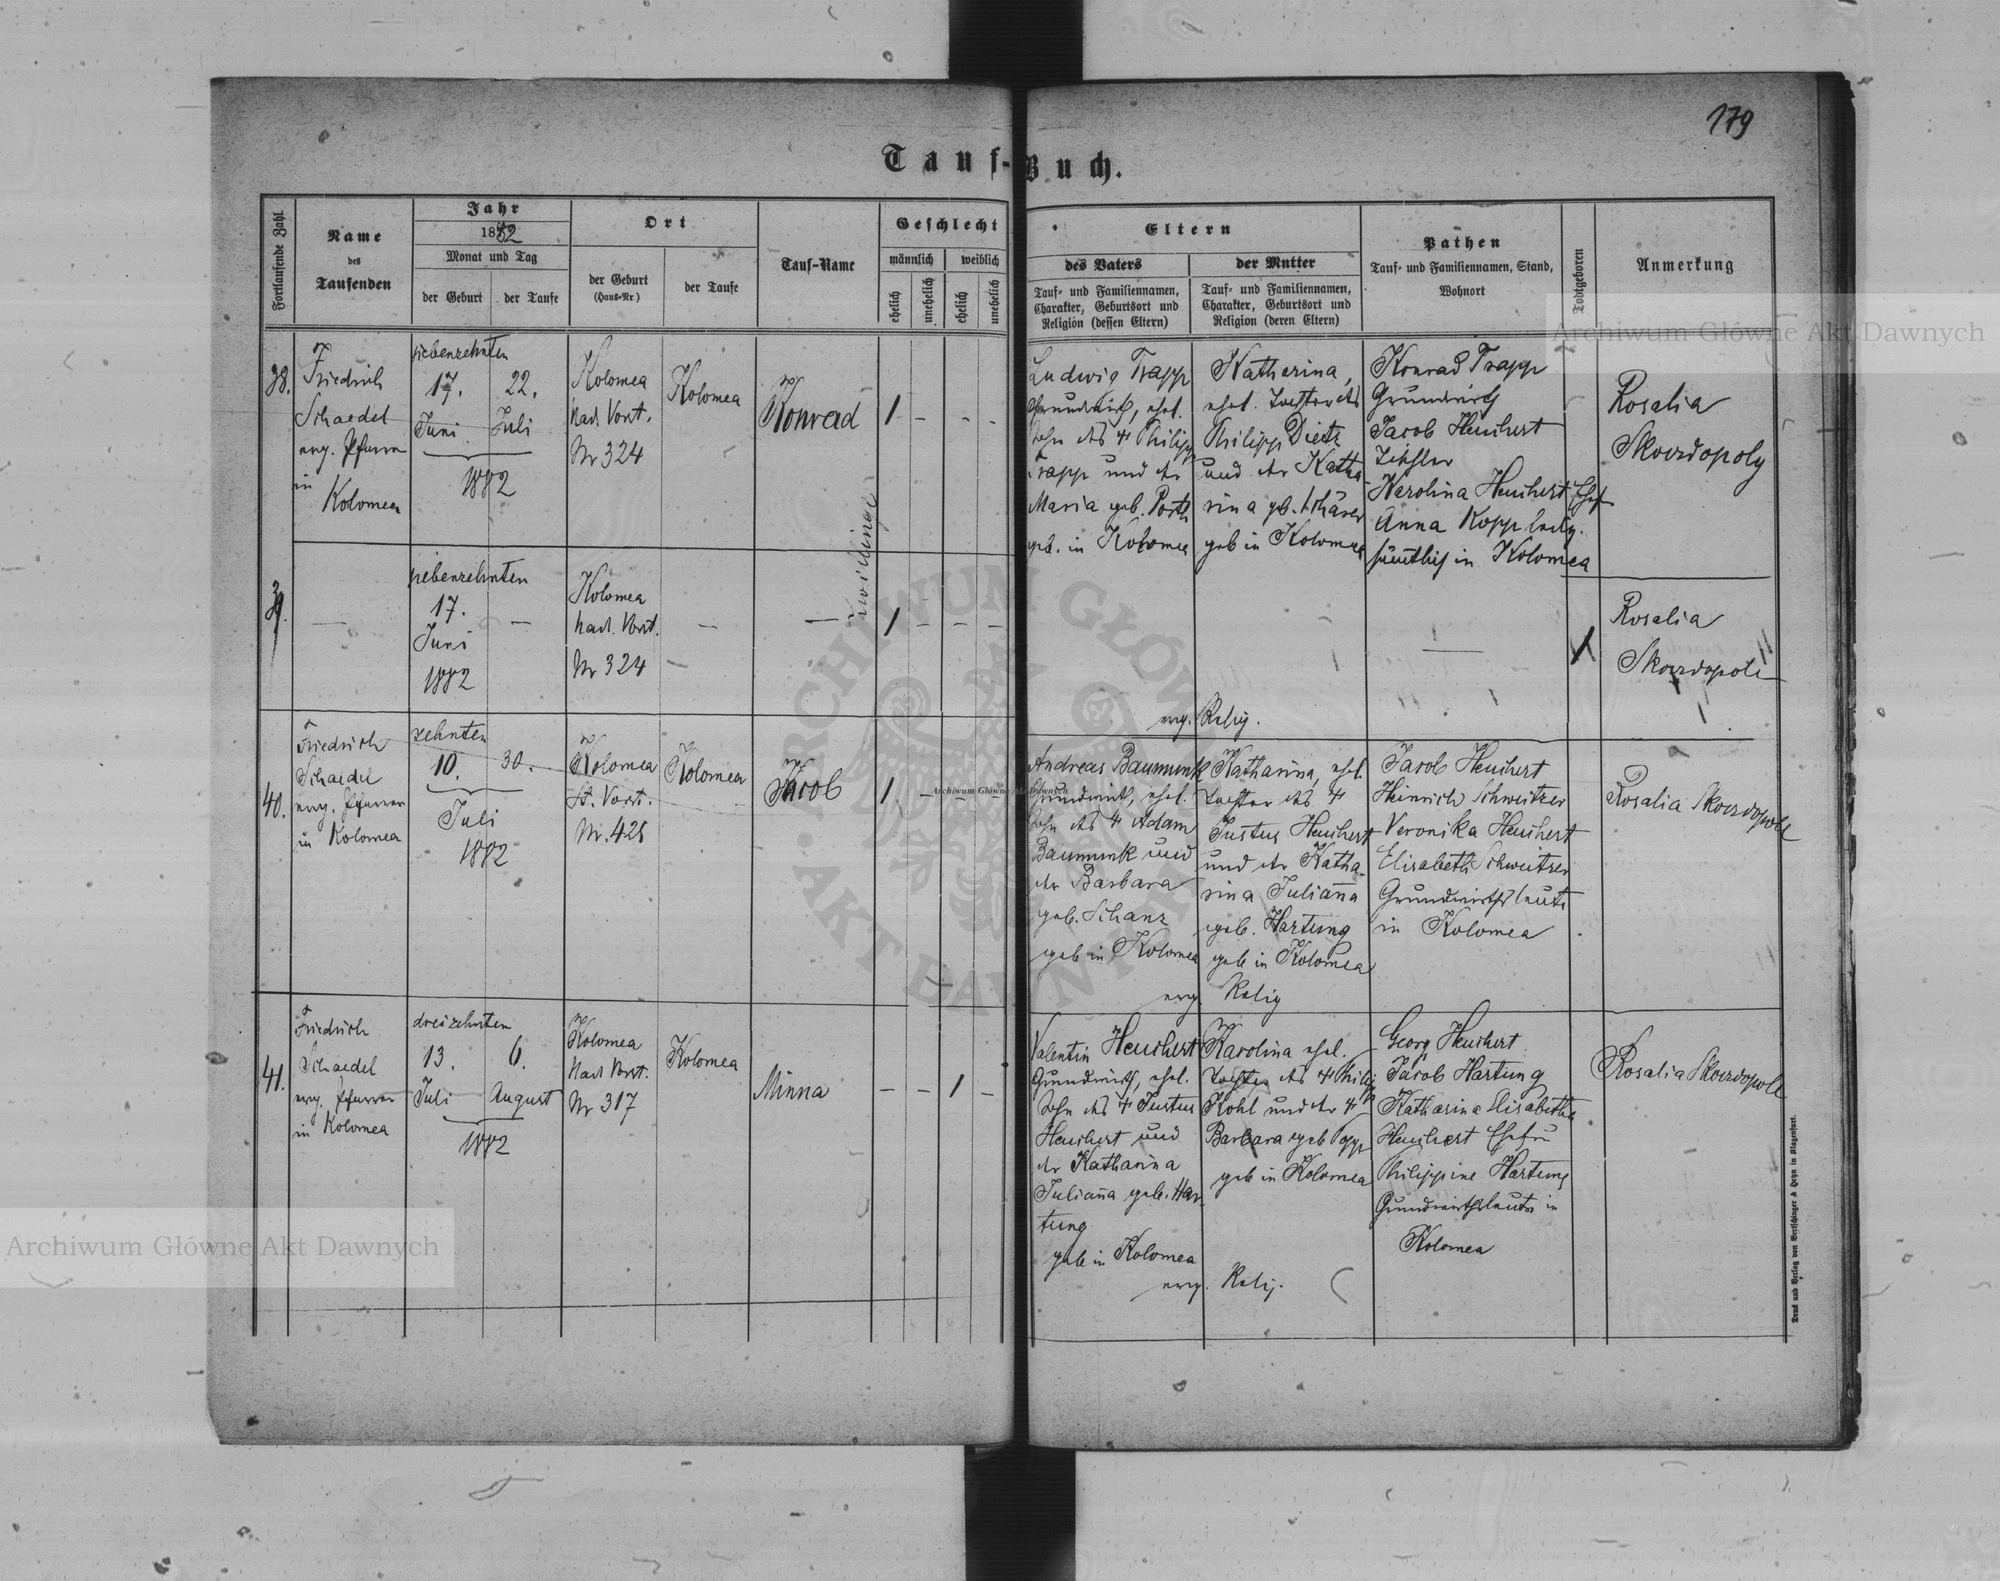 179
Tauf-Buch.
Fortlaufende Zahl
Name
des
Taufenden
Jahr
1882
Monat und Tag
der Geburt
der Taufe
Ort
der Geburt
(Haus-Nr.)
der Taufe
Tauf-Name
Geschlecht
männlich
weiblich
ehelich
unehelich
ehelich
unehelich
Eltern
des Vaters
Tauf- und Familiennamen,
Charakter, Geburtsort und
Religion (dessen Eltern)
der Mutter
Tauf- und Familiennamen,
Charakter, Geburtsort und
Religion (deren Eltern)
Pathen
Tauf- und Familiennamen, Stand,
Wohnort
Todtgeboren
Anmerkung
38.
Friedrich
Schaedel
evg. Pfarrer
in
Kolomea
siebenzehnten
17.
Juni
22.
Juli
1882
Kolomea
Nad. Vorst.
Nr 324
Kolomea
Konrad
1 - - -
Zwillinge
Ludwig Trapp
Grundwirth, ehel.
Sohn des † Philipp
Trapp und der
Maria geb. Porth
geb. in Kolomea
Katharina,
ehel. Tochter des
Philipp Dietz
und der Katha
rina geb. Schärer
geb in Kolomea
Konrad Trapp
Grundwirth
Jacob Heuchert
Karolina Heuchert Ehef
Anna Kopp ledig.
sämtlich in Kolomea
Rosalia
Skwrdopoly
39.
—
siebenzehnten
17.
Juni
1882
—
Kolomea
Nad. Vorst.
Nr 324
—
—
1 - - -
—
1
Rosalia
Skwrdopole
evg. Relig.
40.
Friedrich
Schaedel
evg. Pfarrer
in Kolomea
zehnten
10.
30.
Juli
1882
Kolomea
St. Vorst.
Nr. 428
Kolomea
Jacob
1 - - -
Andreas Baumunk
Grundwirth, ehel.
Sohn des † Adam
Baumunk und
der Barbara
geb. Schanz
geb in Kolomea
Katharina, ehel.
Tochter des †
Justus Heuchert
und der Katha-
rina Juliana
geb. Hartung
geb in Kolomea
Jacob Heuchert
Heinrich Schweitzer
Veronika Heuchert
Elisabeth Schweitzer
Grundwirthsleute
in Kolomea
Rosalia Skwrdopole
evg. Relig
41.
Friedrich
Schaedel
evg. Pfarrer
in Kolomea
dreizehnten
13.
Juli
6.
August
1882
Kolomea
Nad. Vorst.
Nr 317
Kolomea
Minna
- - 1 -
Valentin Heuchert
Grundwirth, ehel.
Sohn des † Justus
Heuchert und
der Katharina
Juliana geb. Har-
tung
geb in Kolomea
Karolina ehel.
Tochter des † Philip
Kohl und der †
Barbara geb Popp
geb in Kolomea
Georg Heuchert
Jacob Hartung
Katharina Elisabetha
Heuchert Ehefr
Philippine Hartung
Grundwirthsleute in
Kolomea
Rosalia Skwrdopole
evg. Relig.
Druck und Verlag von Bertschinger & Heyn in Klagenfurt.
Archiwum Główne Akt Dawnych
Archiwum Główne Akt Dawnych
Archiwum Główne Akt Dawnych